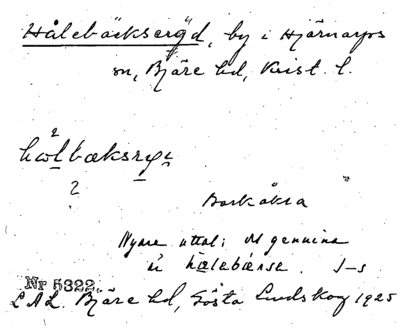 Hålebäckseröd, by i Hjärnarps
sn, Bjäre hd, Krist. l.
2
2
Barkåkra
Nyare uttal; det genuina
är halebänse. J-s
Nr 5322.
L.A.L. Bjäre hd, Gösta Lundskog 1925